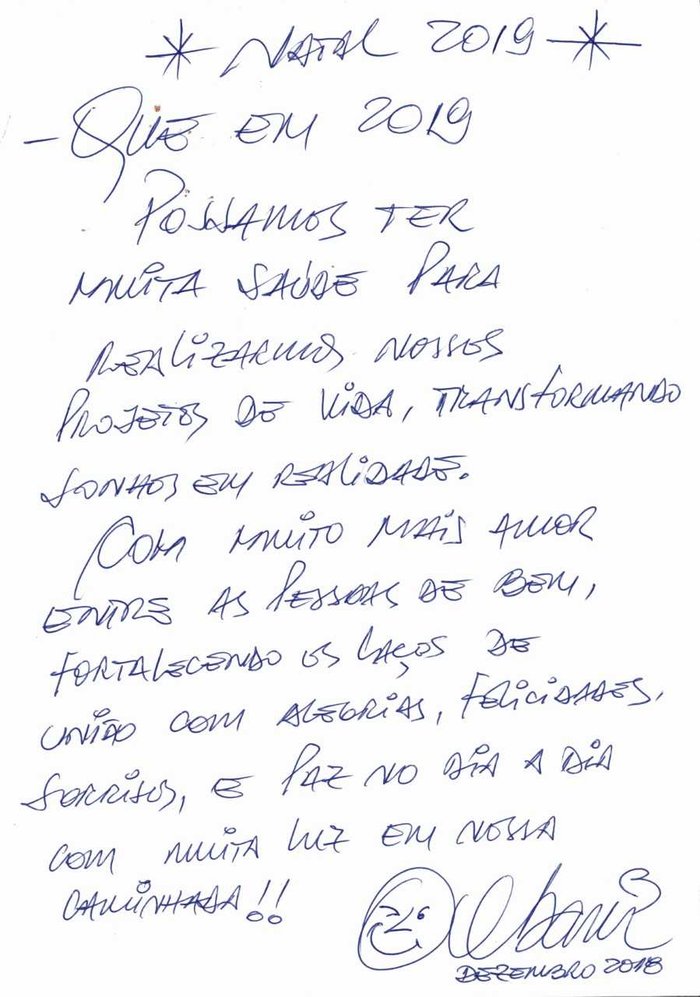 NATAL 2019
- QUE EM 2019
POSSAMOS TER
MUITA SAÚDE PARA
REALIZARMOS NOSSOS
PROJETOS DE VIDA, TRANSFORMANDO
SONHOS EM REALIDADE.
COM MUITO MAIS AMOR
ENTRE AS PESSOAS DE BEM,
FORTALECENDO OS LAÇOS DE
UNIÃO COM ALEGRIAS, FELICIDADES,
SORRISOS, E PAZ NO DIA A DIA
COM MUITA LUZ EM NOSSA
CAMINHADA!!
DEZEMBRO 2018